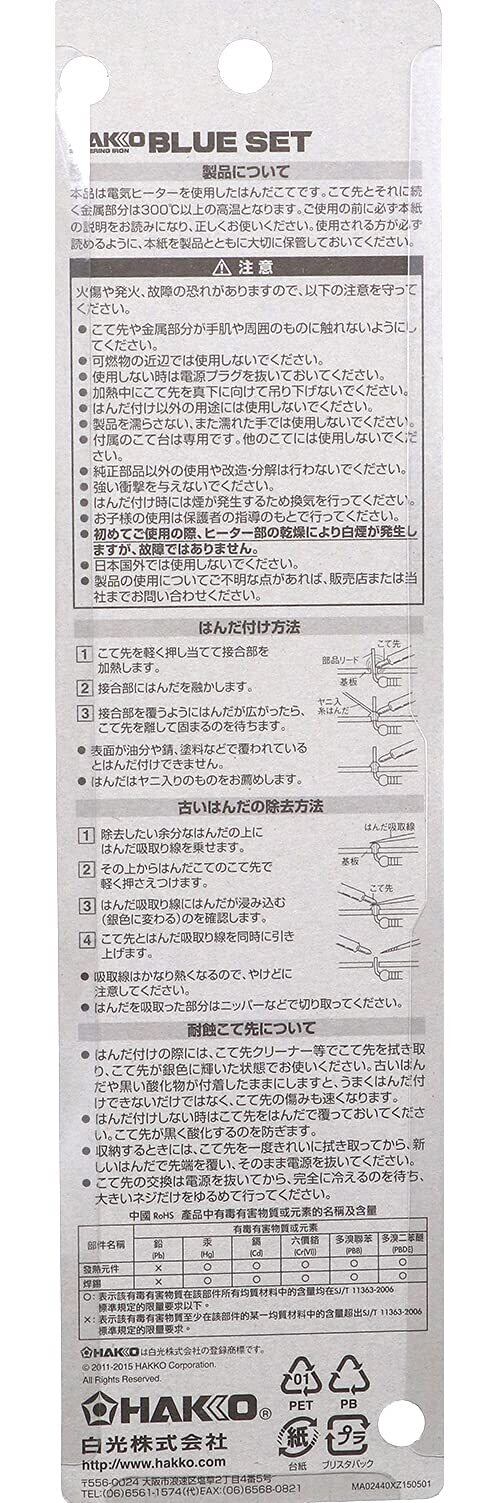 HAKKO BLUE SET
SOLDERING IRON
製品について
本品は電気ヒーターを使用したはんだこてです。こて先とそれに続
く金属部分は300℃以上の高温となります。ご使用の前に必ず本紙
の説明をお読みになり、正しくお使いください。使用される方が必ず
読めるように、本紙を製品とともに大切に保管しておいてください。
⚠ 注意
火傷や発火、故障の恐れがありますので、以下の注意を守って
ください。
● こて先や金属部分が手肌や周囲のものに触れないようにし
てください。
● 可燃物の近辺では使用しないでください。
● 使用しない時は電源プラグを抜いておいてください。
● 加熱中にこて先を真下に向けて吊り下げないでください。
● はんだ付け以外の用途には使用しないでください。
● 製品を濡らさない、また濡れた手では使用しないでください。
● 付属のこて台は専用です。他のこてには使用しないでくだ
さい。
● 純正部品以外の使用や改造・分解は行わないでください。
● 強い衝撃を与えないでください。
● はんだ付け時には煙が発生するため換気を行ってください。
● お子様の使用は保護者の指導のもとで行ってください。
● 初めてご使用の際、ヒーター部の乾燥により白煙が発生し
ますが、故障ではありません。
● 日本国外では使用しないでください。
● 製品の使用についてご不明な点があれば、販売店または当
社までお問い合わせください。
はんだ付け方法
1 こて先を軽く押し当てて接合部を
加熱します。
こて先
部品リード
基板
2 接合部にはんだを融かします。
ヤニ入
糸はんだ
3 接合部を覆うようにはんだが広がったら、
こて先を離して固まるのを待ちます。
● 表面が油分や錆、塗料などで覆われている
とはんだ付けできません。
● はんだはヤニ入りのものをお薦めします。
古いはんだの除去方法
1 除去したい余分なはんだの上に
はんだ吸取り線を乗せます。
はんだ吸取線
基板
2 その上からはんだこてのこて先で
軽く押さえつけます。
こて先
3 はんだ吸取り線にはんだが浸み込む
(銀色に変わる)のを確認します。
4 こて先とはんだ吸取り線を同時に引き
上げます。
● 吸取線はかなり熱くなるので、やけどに
注意してください。
● はんだを吸取った部分はニッパーなどで切り取ってください。
耐蝕こて先について
● はんだ付けの際には、こて先クリーナー等でこて先を拭き取
り、こて先が銀色に輝いた状態でお使いください。古いはん
だや黒い酸化物が付着したままにしますと、うまくはんだ付
けできないだけではなく、こて先の傷みも速くなります。
● はんだ付けしない時はこて先をはんだで覆っておいてくださ
い。こて先が黒く酸化するのを防ぎます。
● 収納するときには、こて先を一度きれいに拭き取ってから、新
しいはんだで先端を覆い、そのまま電源を抜いてください。
● こて先の交換は電源を抜いてから、完全に冷えるのを待ち、
大きいネジだけをゆるめて行ってください。
中國 RoHS 產品中有毒有害物質或元素的名稱及含量
部件名稱 有毒有害物質或元素
鉛 (Pb) 汞 (Hg) 鎘 (Cd) 六價鉻 (Cr(VI)) 多溴聯苯 (PBB) 多溴二苯醚 (PBDE)
發熱元件 × ○ ○ ○ ○ ○
焊錫 × ○ ○ ○ ○ ○
○：表示該有毒有害物質在該部件所有均質材料中的含量均在SJ/T 11363-2006
標準規定的限量要求以下。
×：表示該有毒有害物質至少在該部件的某一均質材料中的含量超出SJ/T 11363-2006
標準規定的限量要求。
HAKKOは白光株式会社の登録商標です。
© 2011-2015 HAKKO Corporation.
All Rights Reserved.
HAKKO®
白光株式会社
http://www.hakko.com
〒556-0024 大阪市浪速区塩草2丁目4番5号
TEL:(06)6561-1574(代) FAX:(06)6568-0821
01
PET
PB
紙
台紙
プラ
ブリスタパック
MA02440XZ150501